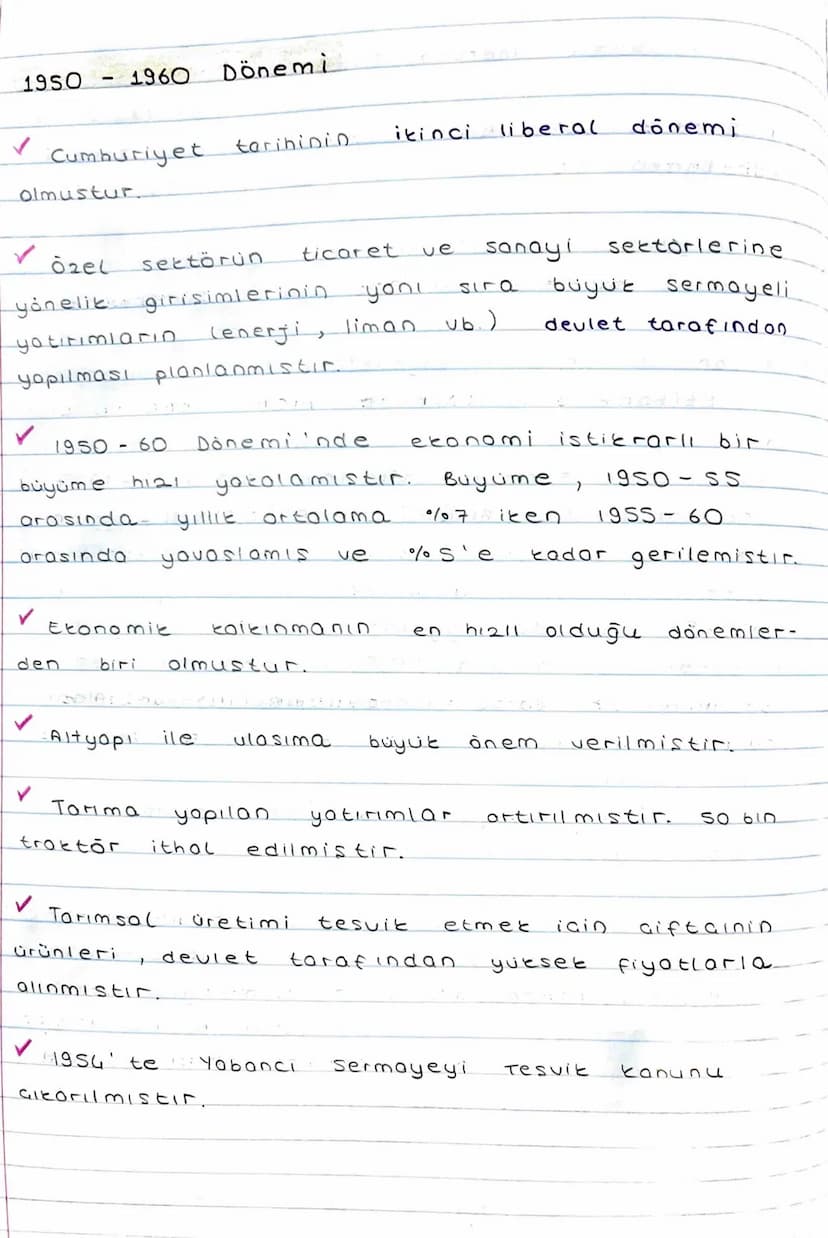 1950 - 1960 Dönemi
✓ Cumhuriyet tarihinin ikinci liberal dönemi
olmustur.
✓ Özel sektörün ticaret ve sanayi sektörlerine
yönelik girisimlerinin yanı sıra büyük sermayeli
yatırımların (enerji, liman vb.) devlet tarafından
yapılması planlanmıstır.
✓ 1950 - 60 Dönemi'nde ekonomi istikrarlı bir
büyüme hızı yakalamıstır. Büyüme, 1950 - 55
arasında yıllık ortalama %7 iken 1955 - 60
arasında yavaslamıs ve %5'e kadar gerilemistir.
✓ Ekonomik kalkınmanın en hızlı olduğu dönemler-
den biri olmustur.
✓ Altyapı ile ulasıma büyük önem verilmistir.
✓ Tarıma yapılan yatırımlar artırılmıstır. 50 bin
traktör ithal edilmistir.
✓ Tarımsal üretimi tesvik etmek icin ciftcinin
ürünleri, devlet tarafından yüksek fiyatlarla
alınmıstır.
✓ 1954'te Yabancı Sermayeyi Tesvik kanunu
cıkarılmıstır.